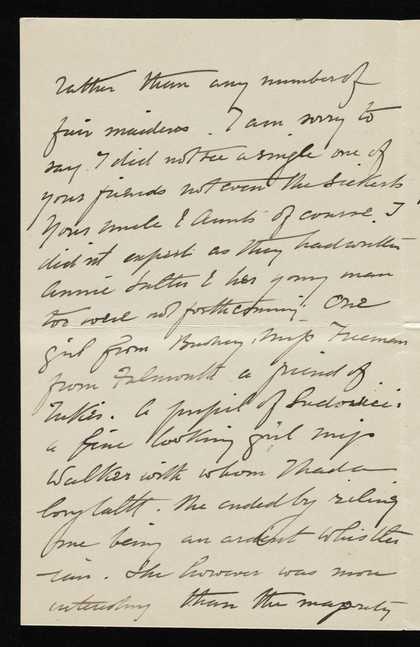 rather than any number of
fair maidens. I am sorry to
say I did not see a single one of
your friends not even the Sickerts
Your uncle & Aunts of course I
didn't expect as they had written
Annie Salter & her young man
too were not forthcoming. One
girl from Bushey, Miss Freeman
from Falmouth a friend of
Tuke's. A pupil of Ludovici's
a fine looking girl Miss
Walker with whom I had a
long talk. She ended by riling
me being an ardent whistler
-ian. She however was more
interesting than the majority